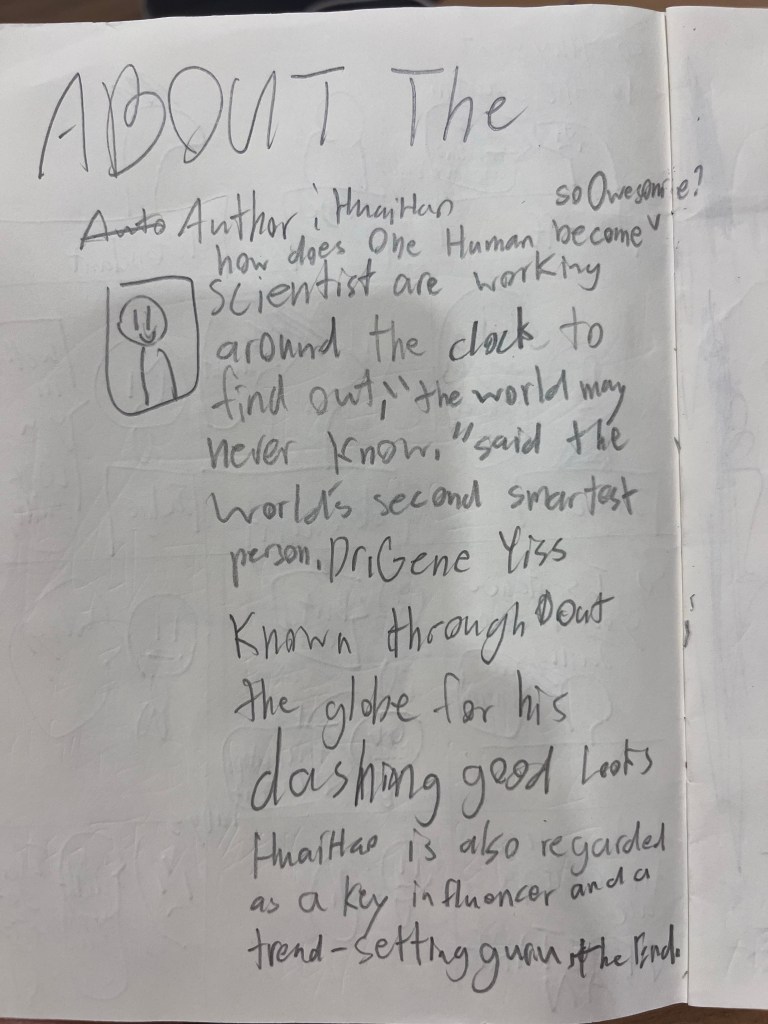 ABOUT The
Auto Author: HuaiHao
so Owesome?
how does One Human become
scientist are working
around the clock to
find out, "the world may
never know." said the
world's second smartest
person. Dr. Gene Yiss
Known throughout
the globe for his
dashing good Looks
HuaiHao is also regarded
as a key influencer and a
trend-setting guru the End.